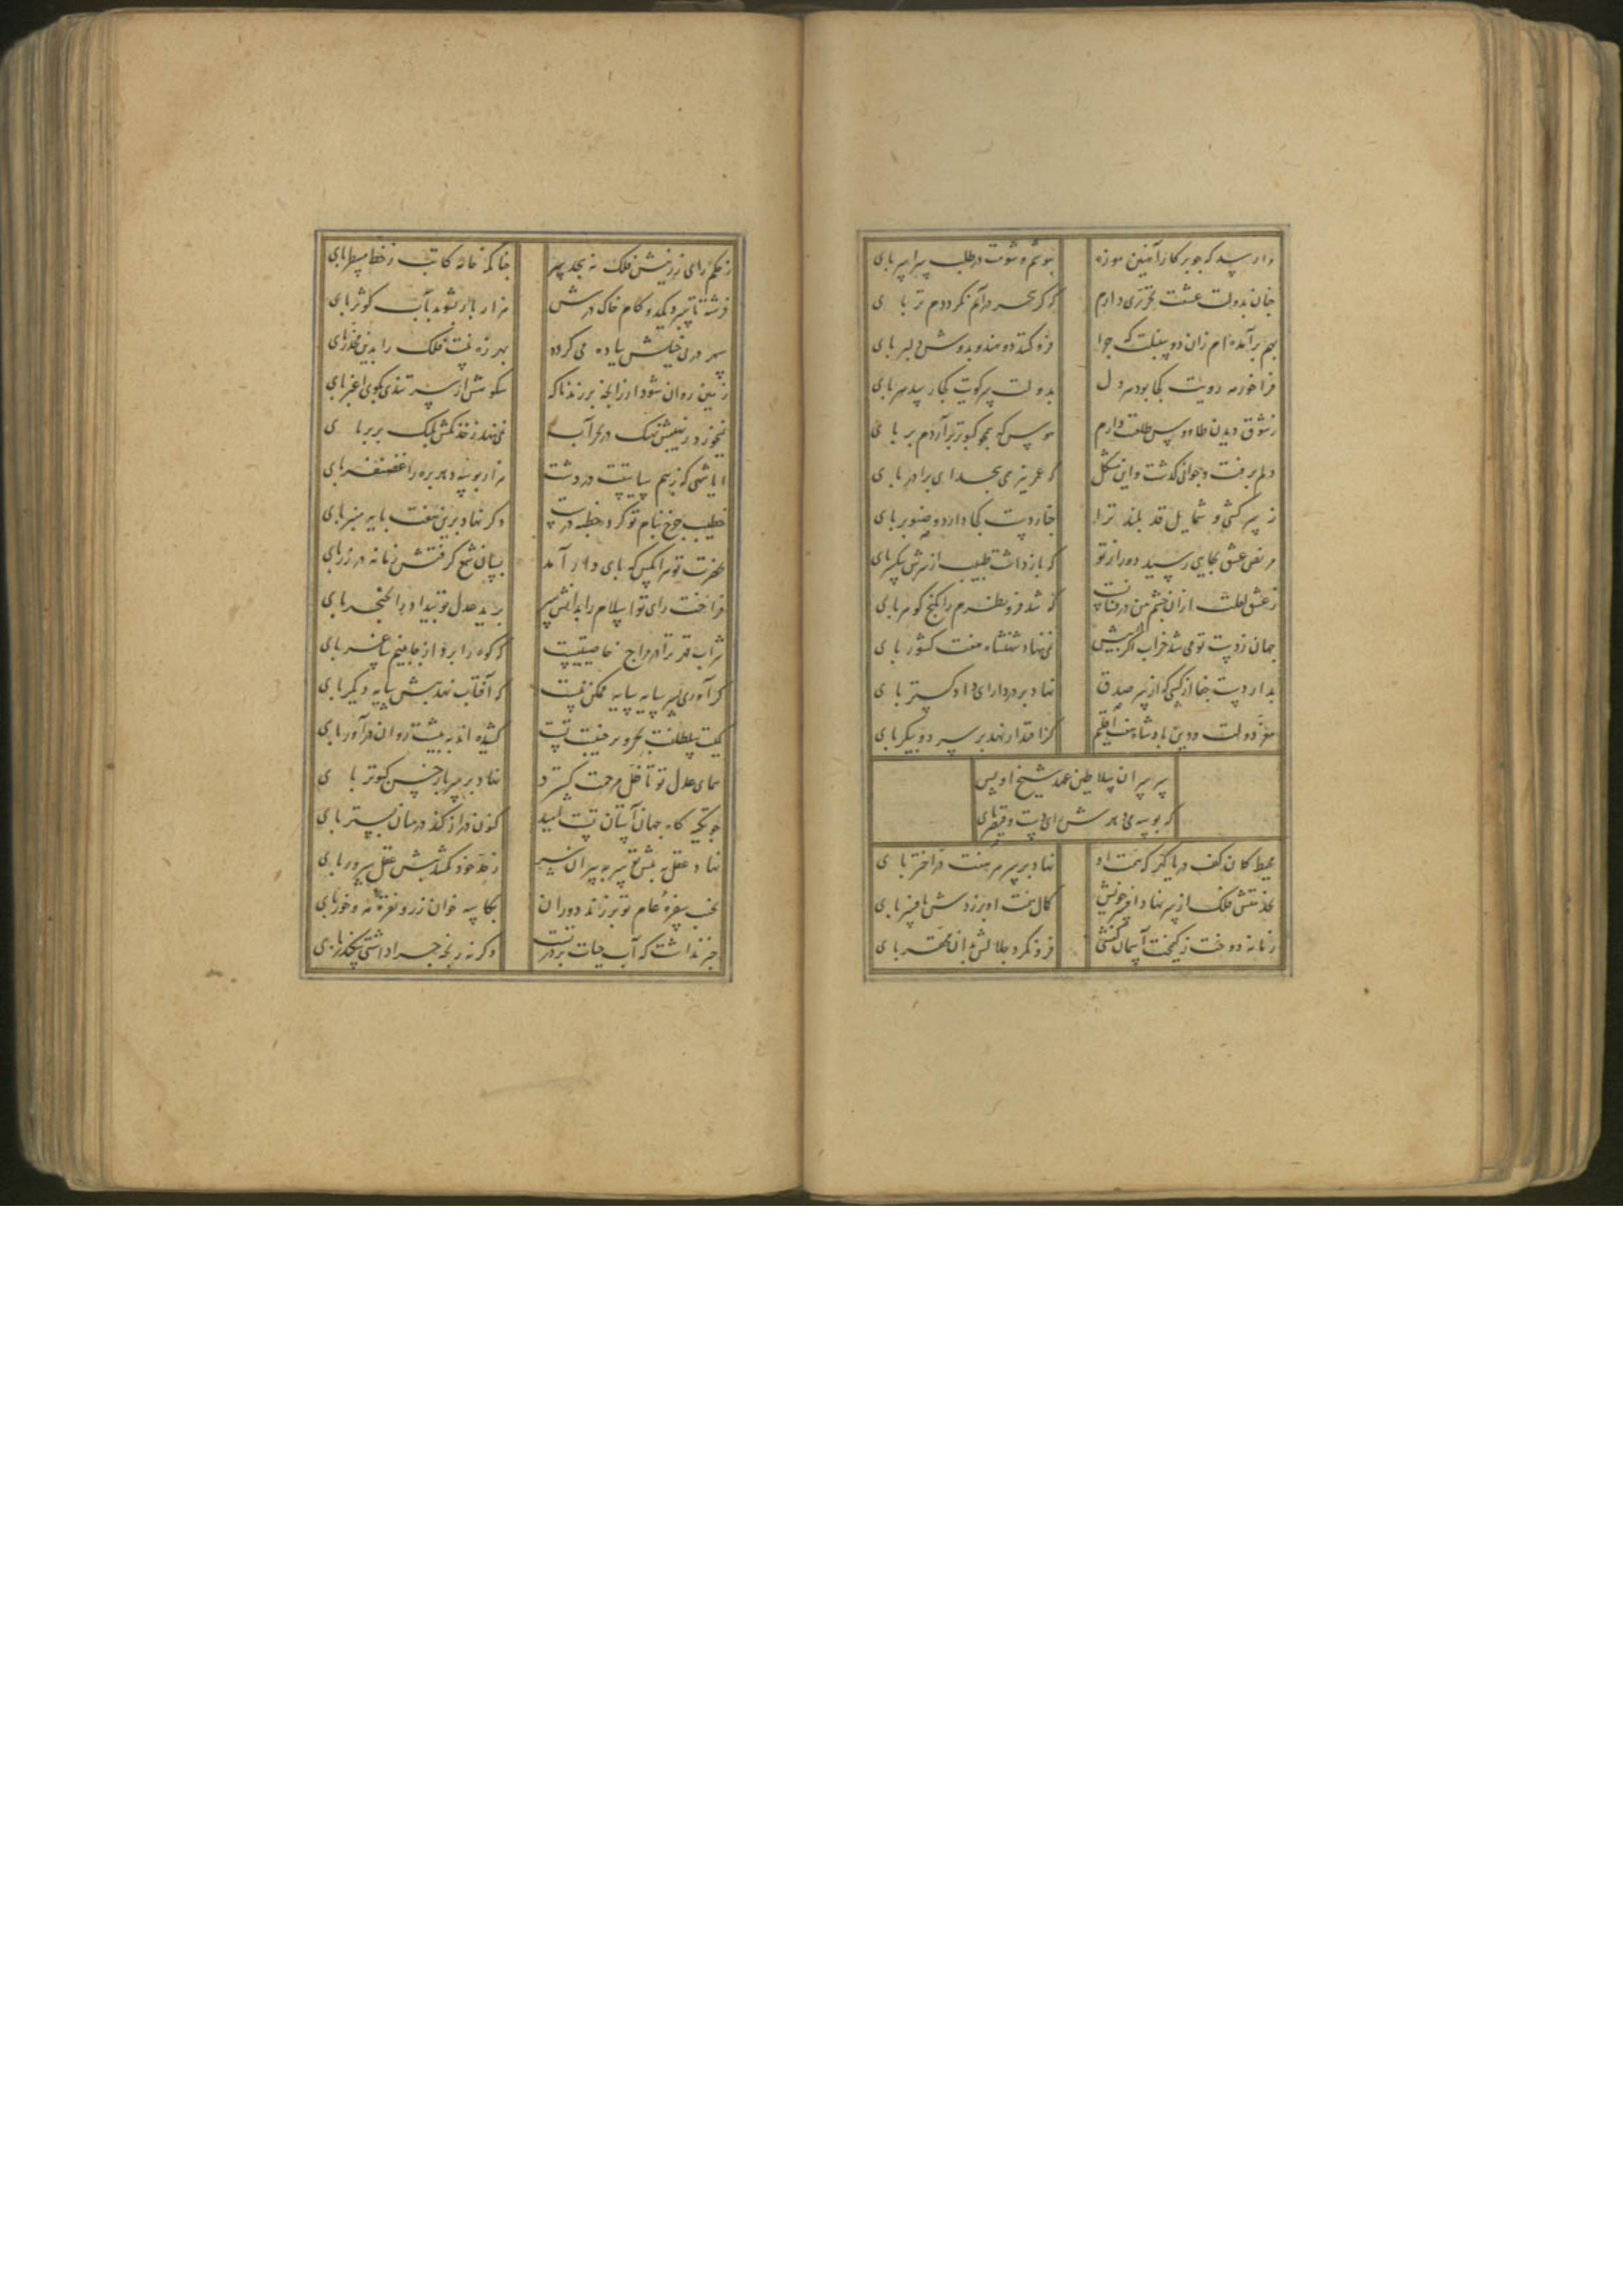 مرا رسد که چو پرکار آهنین موزه بپوشم و شوم در طلب سراسر پای
چنان بدولت عشقت تجردی دارم که گر به بحر درآیم نگرددم تر پای
بهم برآمده‌ام زان دو سنبلت که چرا فرو کند دو هندو بدوش دلبر پای
فراخور مه رویت کجا بود مه دل بدولت سر کویت کجا رسد هر پای
ز شوق دیدن طاووس طلعت دارم هوس که همچو کبوتر برآردم پر پای
دلم برفت و جوانی گذشت و این مشکل که عمر نیز می‌نجسد ای برادر پای
ز سرکشی و شمایل قد بلند ترا چنار دست کجا دارد و صنوبر پای
مریض عشق بجایی رسید دور از تو که بازداشت طبیب از سرش بیکسر پای
ز عشق لعلت ازان چشم من درفشانست که شد فرو نظرم را بگنج گوهر پای
جهان ز دست تو می شد خراب اگر پیش نمی نهاد شهنشاه هفت کشور پای
بدار دست جفا از کسی که از سر صدق نهاد بر در دارای دادگستر پای
معز دولت و دین پادشاه هفت اقلیم که اقتدار نهد بر سر دو پیکر پای
سر سران سلاطین عهد شیخ اویس
که بوسه می‌دهدش رای دست و قیصر پای
محیط کان کف دریا گهر که همت او نهاد بر سر هفت اختر پای
بخدمتش فلک از سر نهاد افسر خویش کمال همت او برزدش بافسر پای
زمانه دوخت ز کیمخت آسمان کفشی فرو نکرد جلالش بدان محقر پای
ز حکم رای زرینش فلک نه بجد سر چنانکه خانه کاتب ز خط مسطر پای
فرشته تا سپرد یکدو گام خاک درش هزار بار بشوید بآب کوثر پای
سپهر در پی خیلش پیاده می کرد بهرزه نیست فلک را بدین مخدر پای
زمین روان شود از زانچه بر زند ناگه سکونش از سر تندی بکوی اغبر پای
نمی‌خورد ز نهیبش نهنگ در بحر آب نمی‌نهد ز خدنگش پلنگ بر بر پای
ایا شهی که ز بیم سیاستت در دشت هزار بوسه دهد بره را غضنفر پای
خطیب چرخ بنام تو کرد خطبه درست دگر نهاد برین هفت پایه منبر پای
بحضرت تو هر آنکس که پای دار آمد بسان شمع گرفتش زمانه در زر پای
فراخت رای تو اسلام را بدانش سر برید عدل تو بیداد را بخنجر پای
شراب قهر ترا در مزاج خاصیتیست که کوه را برد از جا بنیم ساغر پای
گر آوری به سر سایه پایه ممکن نیست که آفتاب نهد پیش سایه دیگر پای
کمیت سلطنتت بحر و بر جنیبت تست کشیده اند به پیشت روان در آور پای
همای عدل تو تا ظل مرحمت گسترد نهاد بر سر باز خشن کبوتر پای
چو تکیه گاه جهان آستان تست امید کنون دراز کند در میان بستر پای
نهاد عقل به پیش تو سر به پیران سر ز حد خود نکشد پیش عقل پرور پای
بجنب سفره عام تو برزند دوران بکاسه خوان زر و نقره مه و خور پای
خبر نداشت که آب حیات بر در تست وگرنه رنجه چرا داشتی سکندر پای